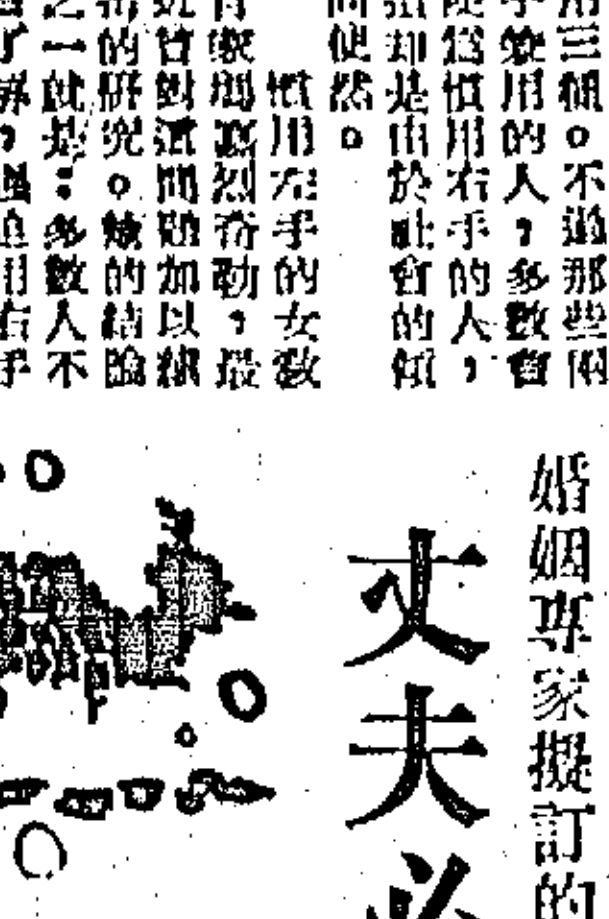 用三組。不過那些兩
手變用的人，多數會
使爲慣用右手的人，
這却是由於社會的傾
向使然。
慣用左手的女教
育家瑪嘉烈奇勒，最
近曾對這問題加以
的研究。她的結論
之一就是：多數人不
了解，強迫用右手
婚姻專家擬訂的
丈夫必